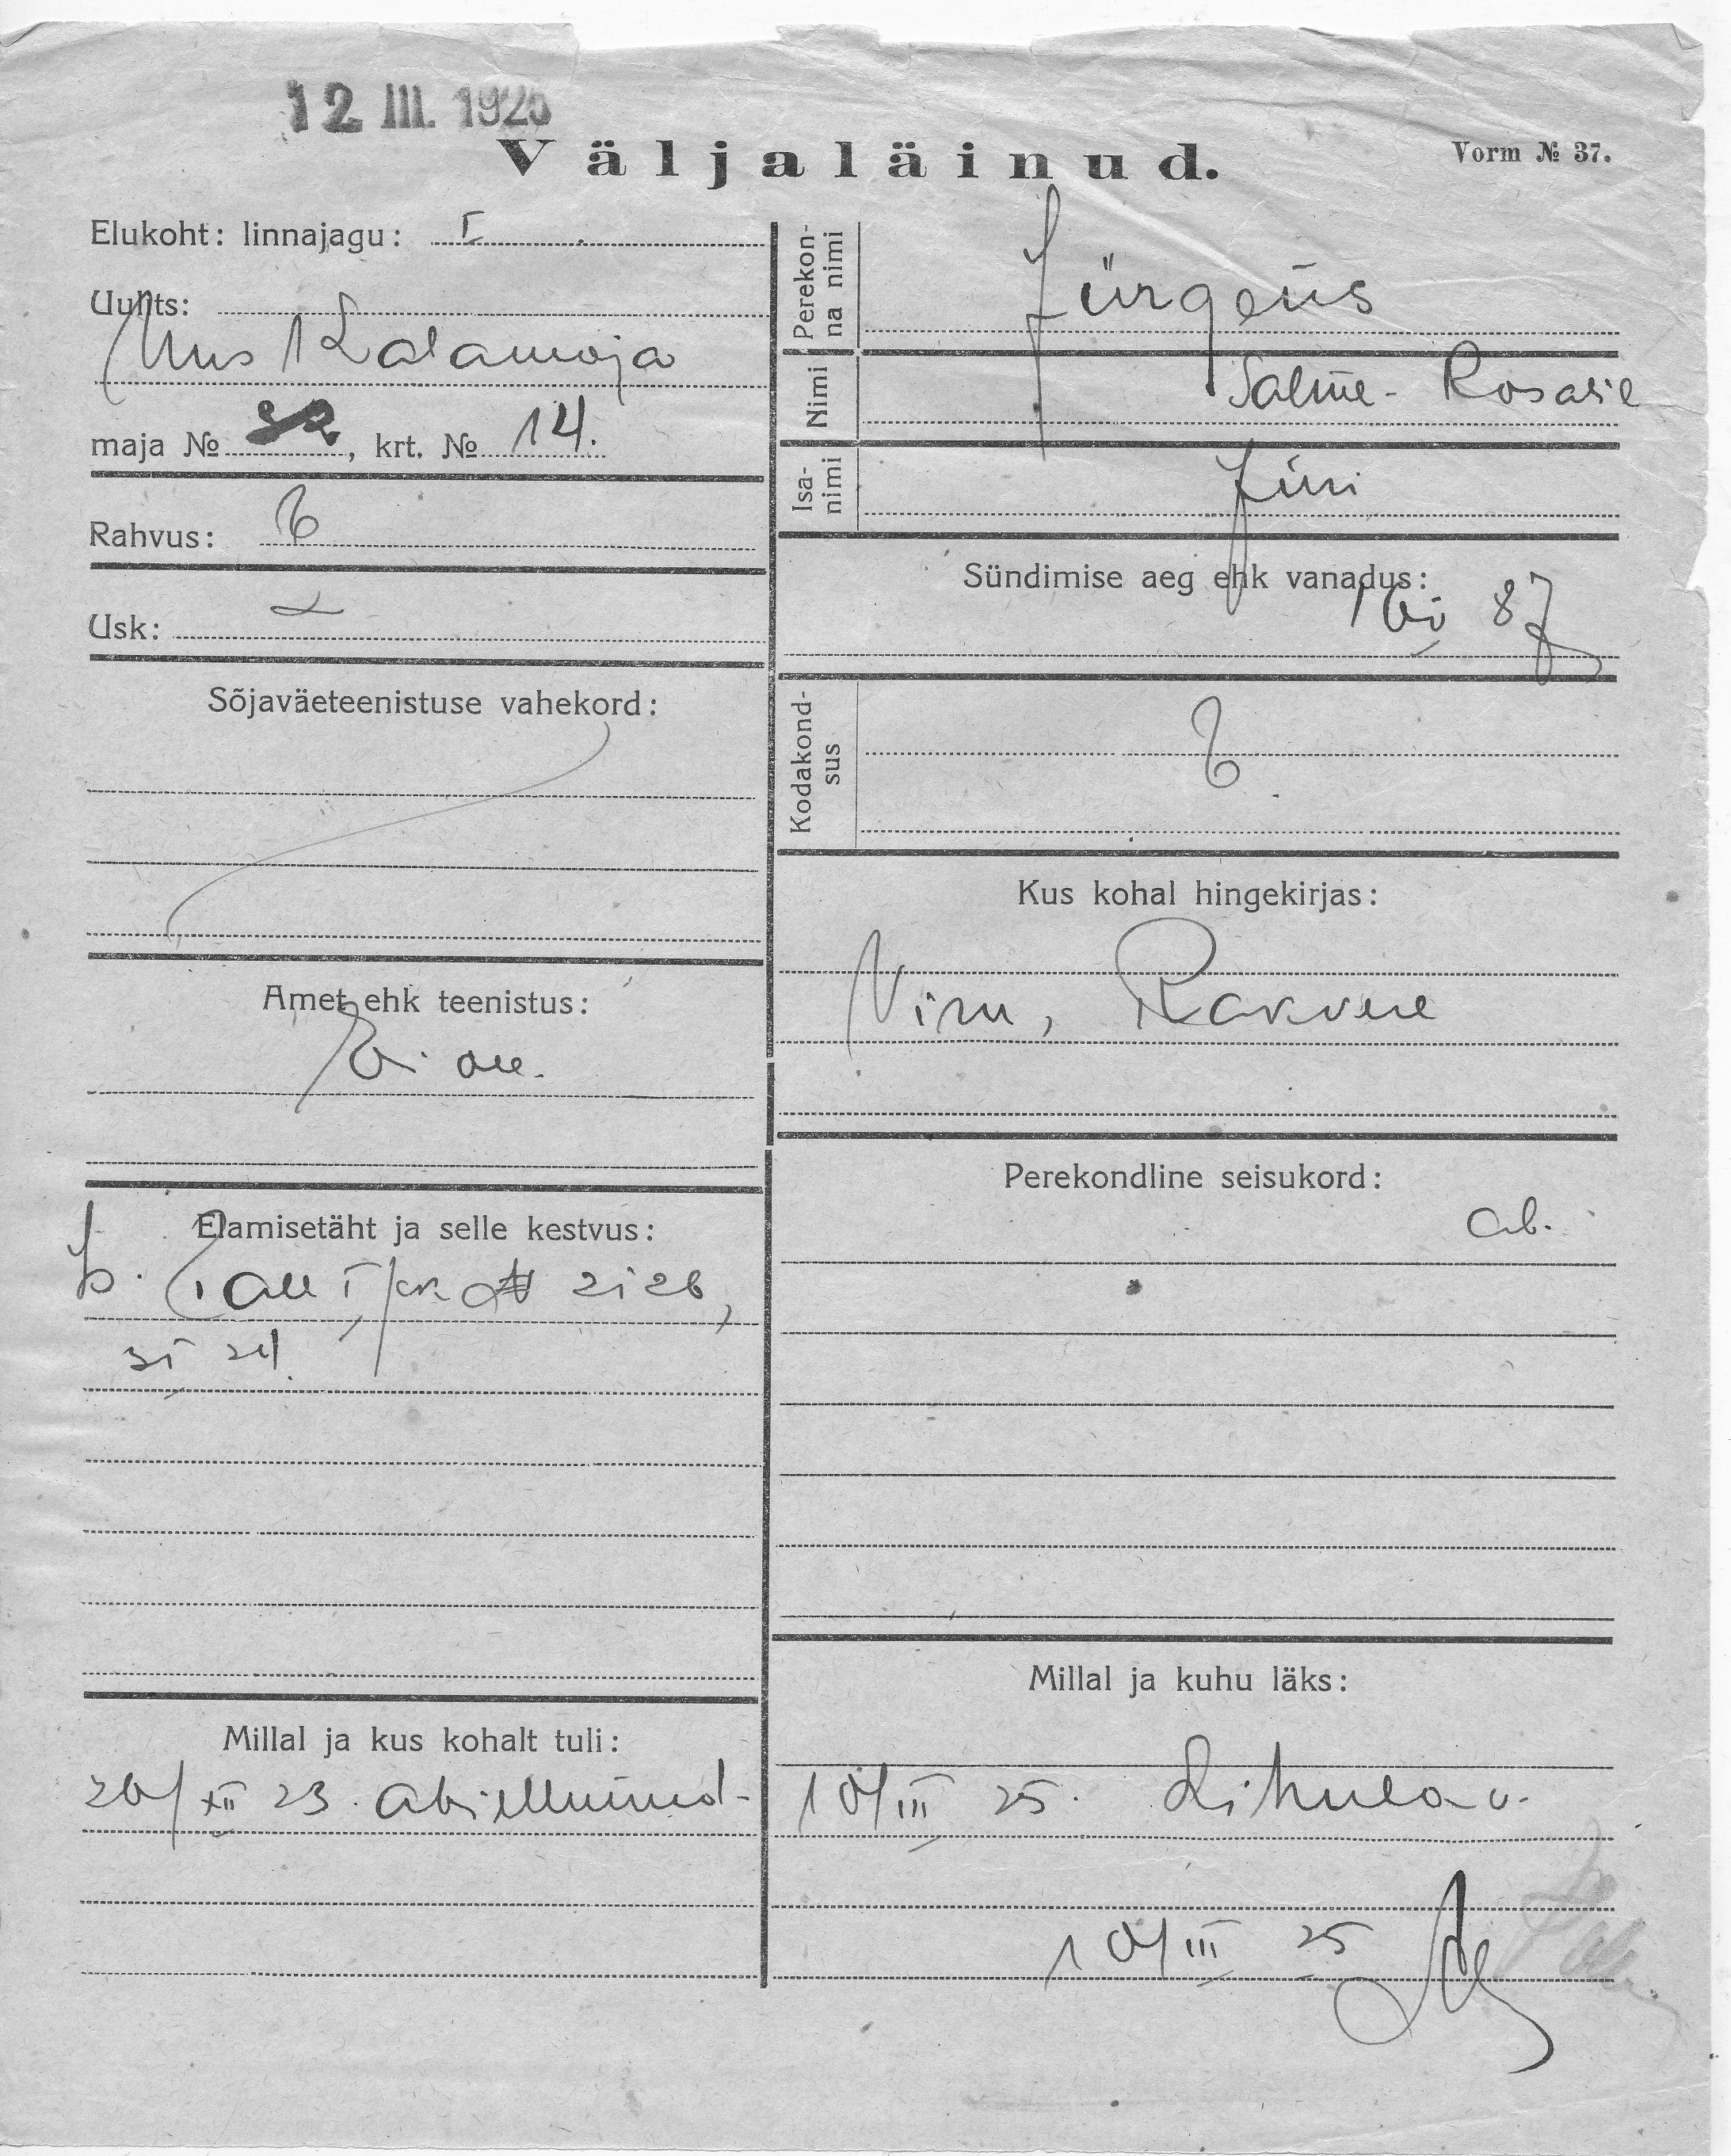 12 III. 1925
Väljaläinud.
Vorm № 37.
Elukoht: linnajagu: I
Uulits:
Uus Kalamaja
maja № 32, krt. № 14.
Rahvus: E
Usk: L
Sõjaväeteenistuse vahekord:
Amet ehk teenistus:
Ei ole.
Elamisetäht ja selle kestvus:
Tall I jsk № 2126,
Millal ja kus kohalt tuli:
20/XII 23. abiellunud.
Perekon-
na nimi
Jürgens
Nimi
Salme-Rosalie
Isa-
nimi
Jüri
Sündimise aeg ehk vanadus:
87
Kodakond-
sus
E
Kus kohal hingekirjas:
Viru, Rakvere
Perekondline seisukord:
ab.
Millal ja kuhu läks:
10/III 25. Lihula v.
10/III 25